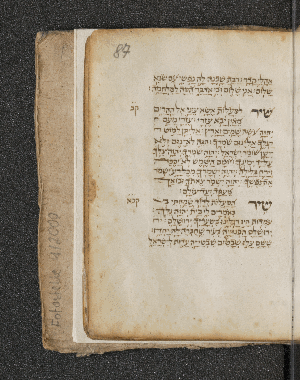 87
אהלי קדר רבת שכנה לה נפשי עם שונא
שלום אני שלום וכי אדבר המה למלחמה
שיר למעלות אשא עיני אל ההרים
מאין יבא עזרי עזרי מעם
יהוה עשה שמים וארץ אל יתן למוט
רגלך אל ינום שמרך הנה לא ינום ולא
יישן שומר ישראל יהוה שמרך יהוה צלך
על יד ימינך יומם השמש לא יככה
וירח בלילה יהוה ישמרך מכל רע ישמר
את נפשך יהוה ישמר צאתך ובואך
מעתה ועד עולם
שיר המעלות לדוד שמחתי ב
אומרים לי בית יהוה נלך
עמדות היו רגלינו בשעריך ירושלם
ירושלם הבנויה כעיר שחברה לה יחדו
ששם עלו שבטים שבטי יה עדות לישראל